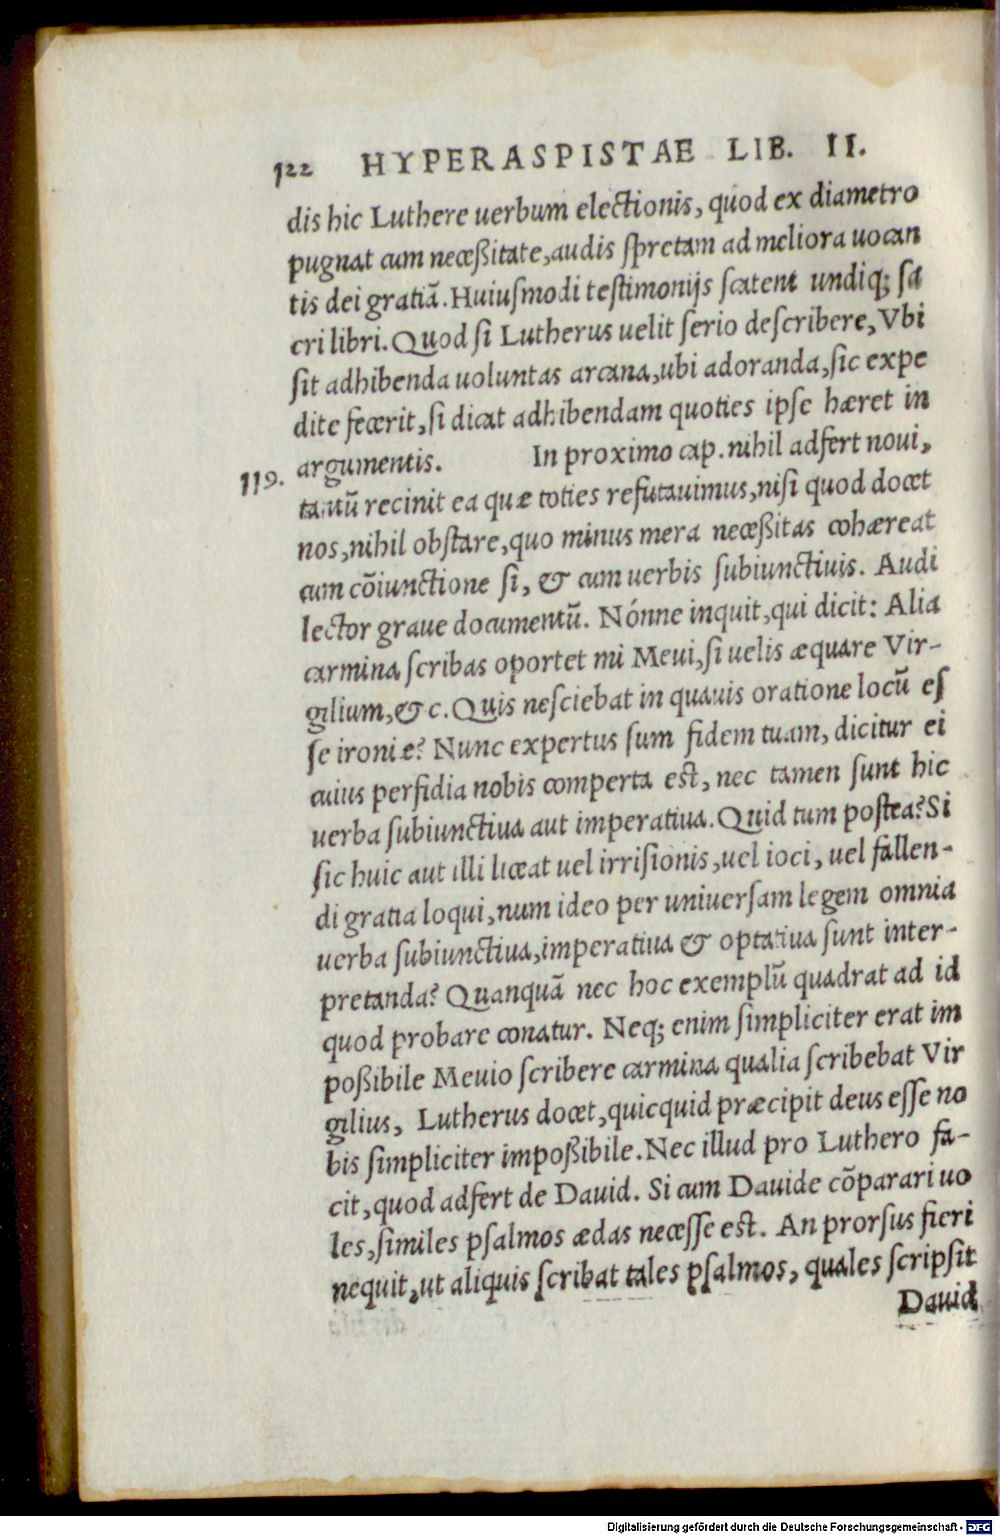 122 HYPERASPISTAE LIB. II.
dis hic Luthere uerbum electionis, quod ex diametro
pugnat cum neceßitate, audis spretam ad meliora uocan
tis dei gratiã. Huiusmodi testimonijs scatent undiq; sa
cri libri. Quod si Lutherus uelit serio describere, Vbi
sit adhibenda uoluntas arcana, ubi adoranda, sic expe
dite fecerit, si dicat adhibendam quoties ipse hæret in
argumentis. In proximo cap. nihil adfert noui,
119.
tantũ recinit ea quæ toties refutauimus, nisi quod docet
nos, nihil obstare, quo minus mera neceßitas cohæreat
cum cõiunctione si, & cum uerbis subiunctiuis. Audi
lector graue documentũ. Nónne inquit, qui dicit: Alia
carmina scribas oportet mi Meui, si uelis æquare Vir-
gilium, & c. Quis nesciebat in quauis oratione locũ es
se ironiæ? Nunc expertus sum fidem tuam, dicitur ei
cuius perfidia nobis comperta est, nec tamen sunt hic
uerba subiunctiua aut imperatiua. Quid tum postea? Si
sic huic aut illi liceat uel irrisionis, uel ioci, uel fallen-
di gratia loqui, num ideo per uniuersam legem omnia
uerba subiunctiua, imperatiua & optatiua sunt inter-
pretanda? Quanquã nec hoc exemplũ quadrat ad id
quod probare conatur. Neq; enim simpliciter erat im
poßibile Meuio scribere carmina qualia scribebat Vir
gilius, Lutherus docet, quicquid præcipit deus esse no
bis simpliciter impoßibile. Nec illud pro Luthero fa-
cit, quod adfert de Dauid. Si cum Dauide cõparari uo
les, similes psalmos ædas necesse est. An prorsus fieri
nequit, ut aliquis scribat tales psalmos, quales scripsit
Dauid
Digitalisierung gefördert durch die Deutsche Forschungsgemeinschaft - DFG